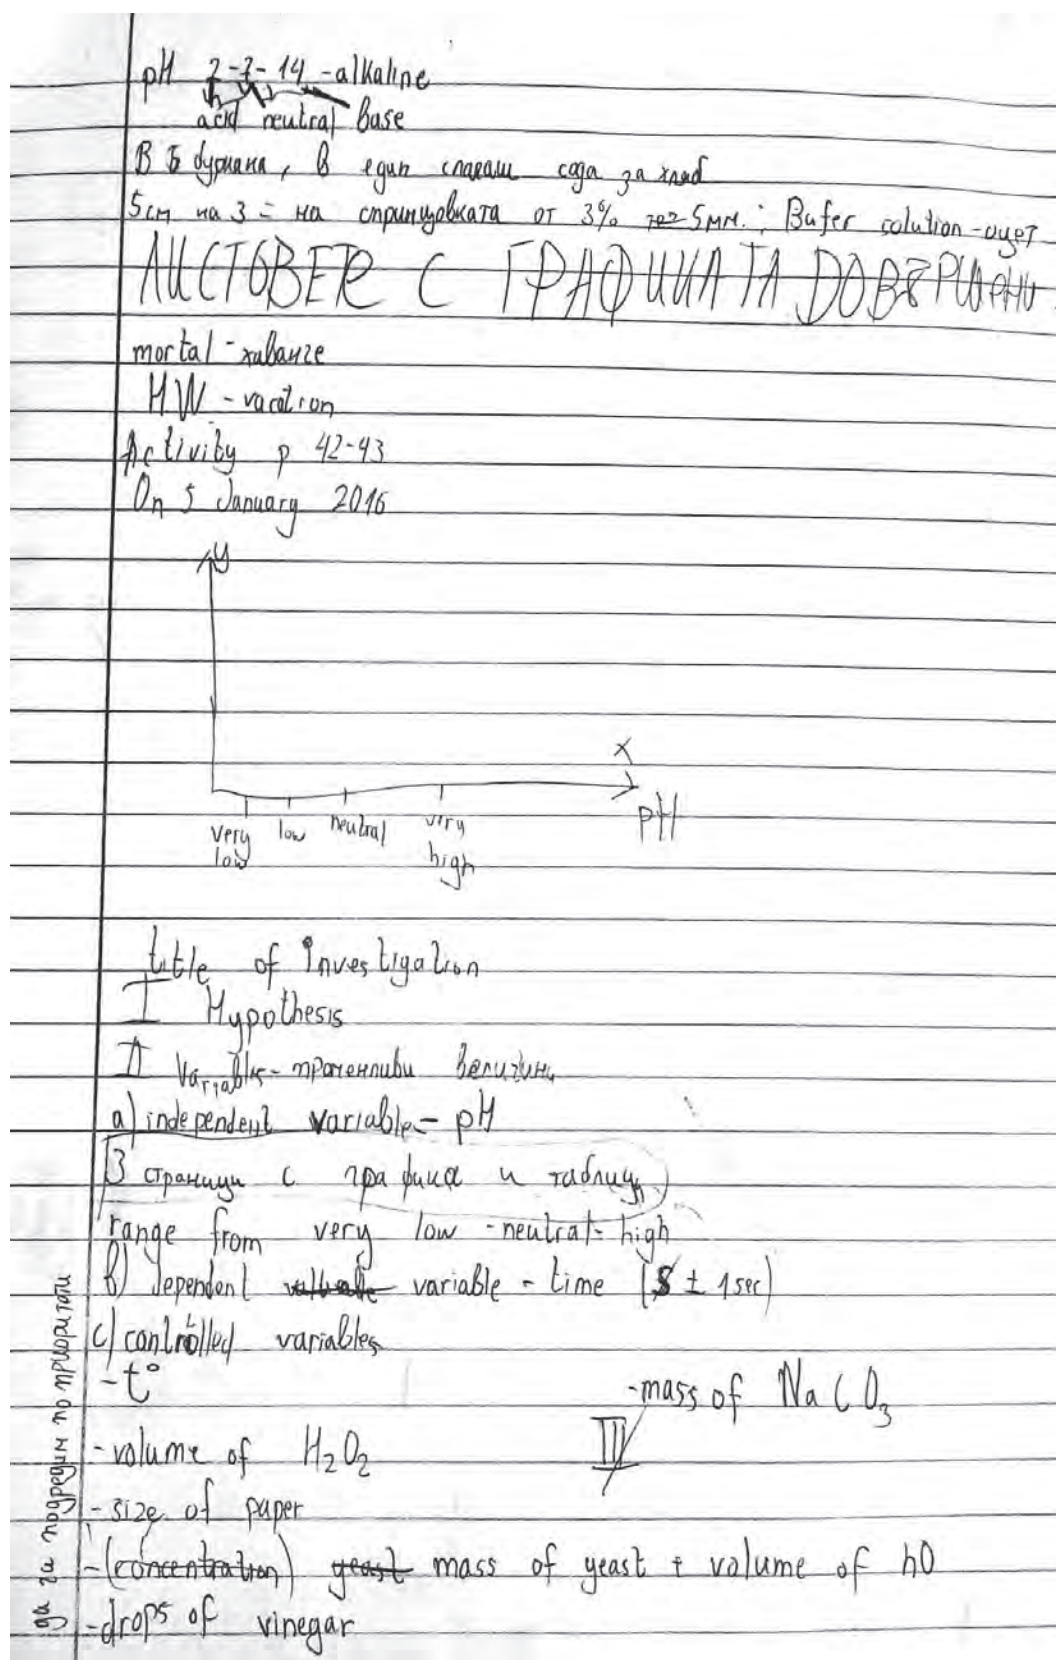 pH 2-7-14 -alkaline
acid neutral base
В 5 буркана, в един слагаш сода за хляб
5см на 3 = на спринцовката от 3% 5мм. ; Bufer solution-оцет
ЛИСТОВЕТЕ С ГРАФИКАТА ДОВЪРШЕНИ
mortal - хаванче
HW - vacation
Activity p 42-43
On 5 January 2016
y
x
very low low neutral very high pH
title of Investigation
I Hypothesis
II Variables - променливи величини
a) independent variable - pH
3 страници с графика и таблици
range from very low - neutral - high
b) dependent variable - time (s ± 1 sec)
c) controlled variables
- t°
-mass of NaCO3
III
- volume of H2O2
- size of paper
- (concentration) yeast mass of yeast + volume of h0
- drops of vinegar
да ги подредим по приоритети